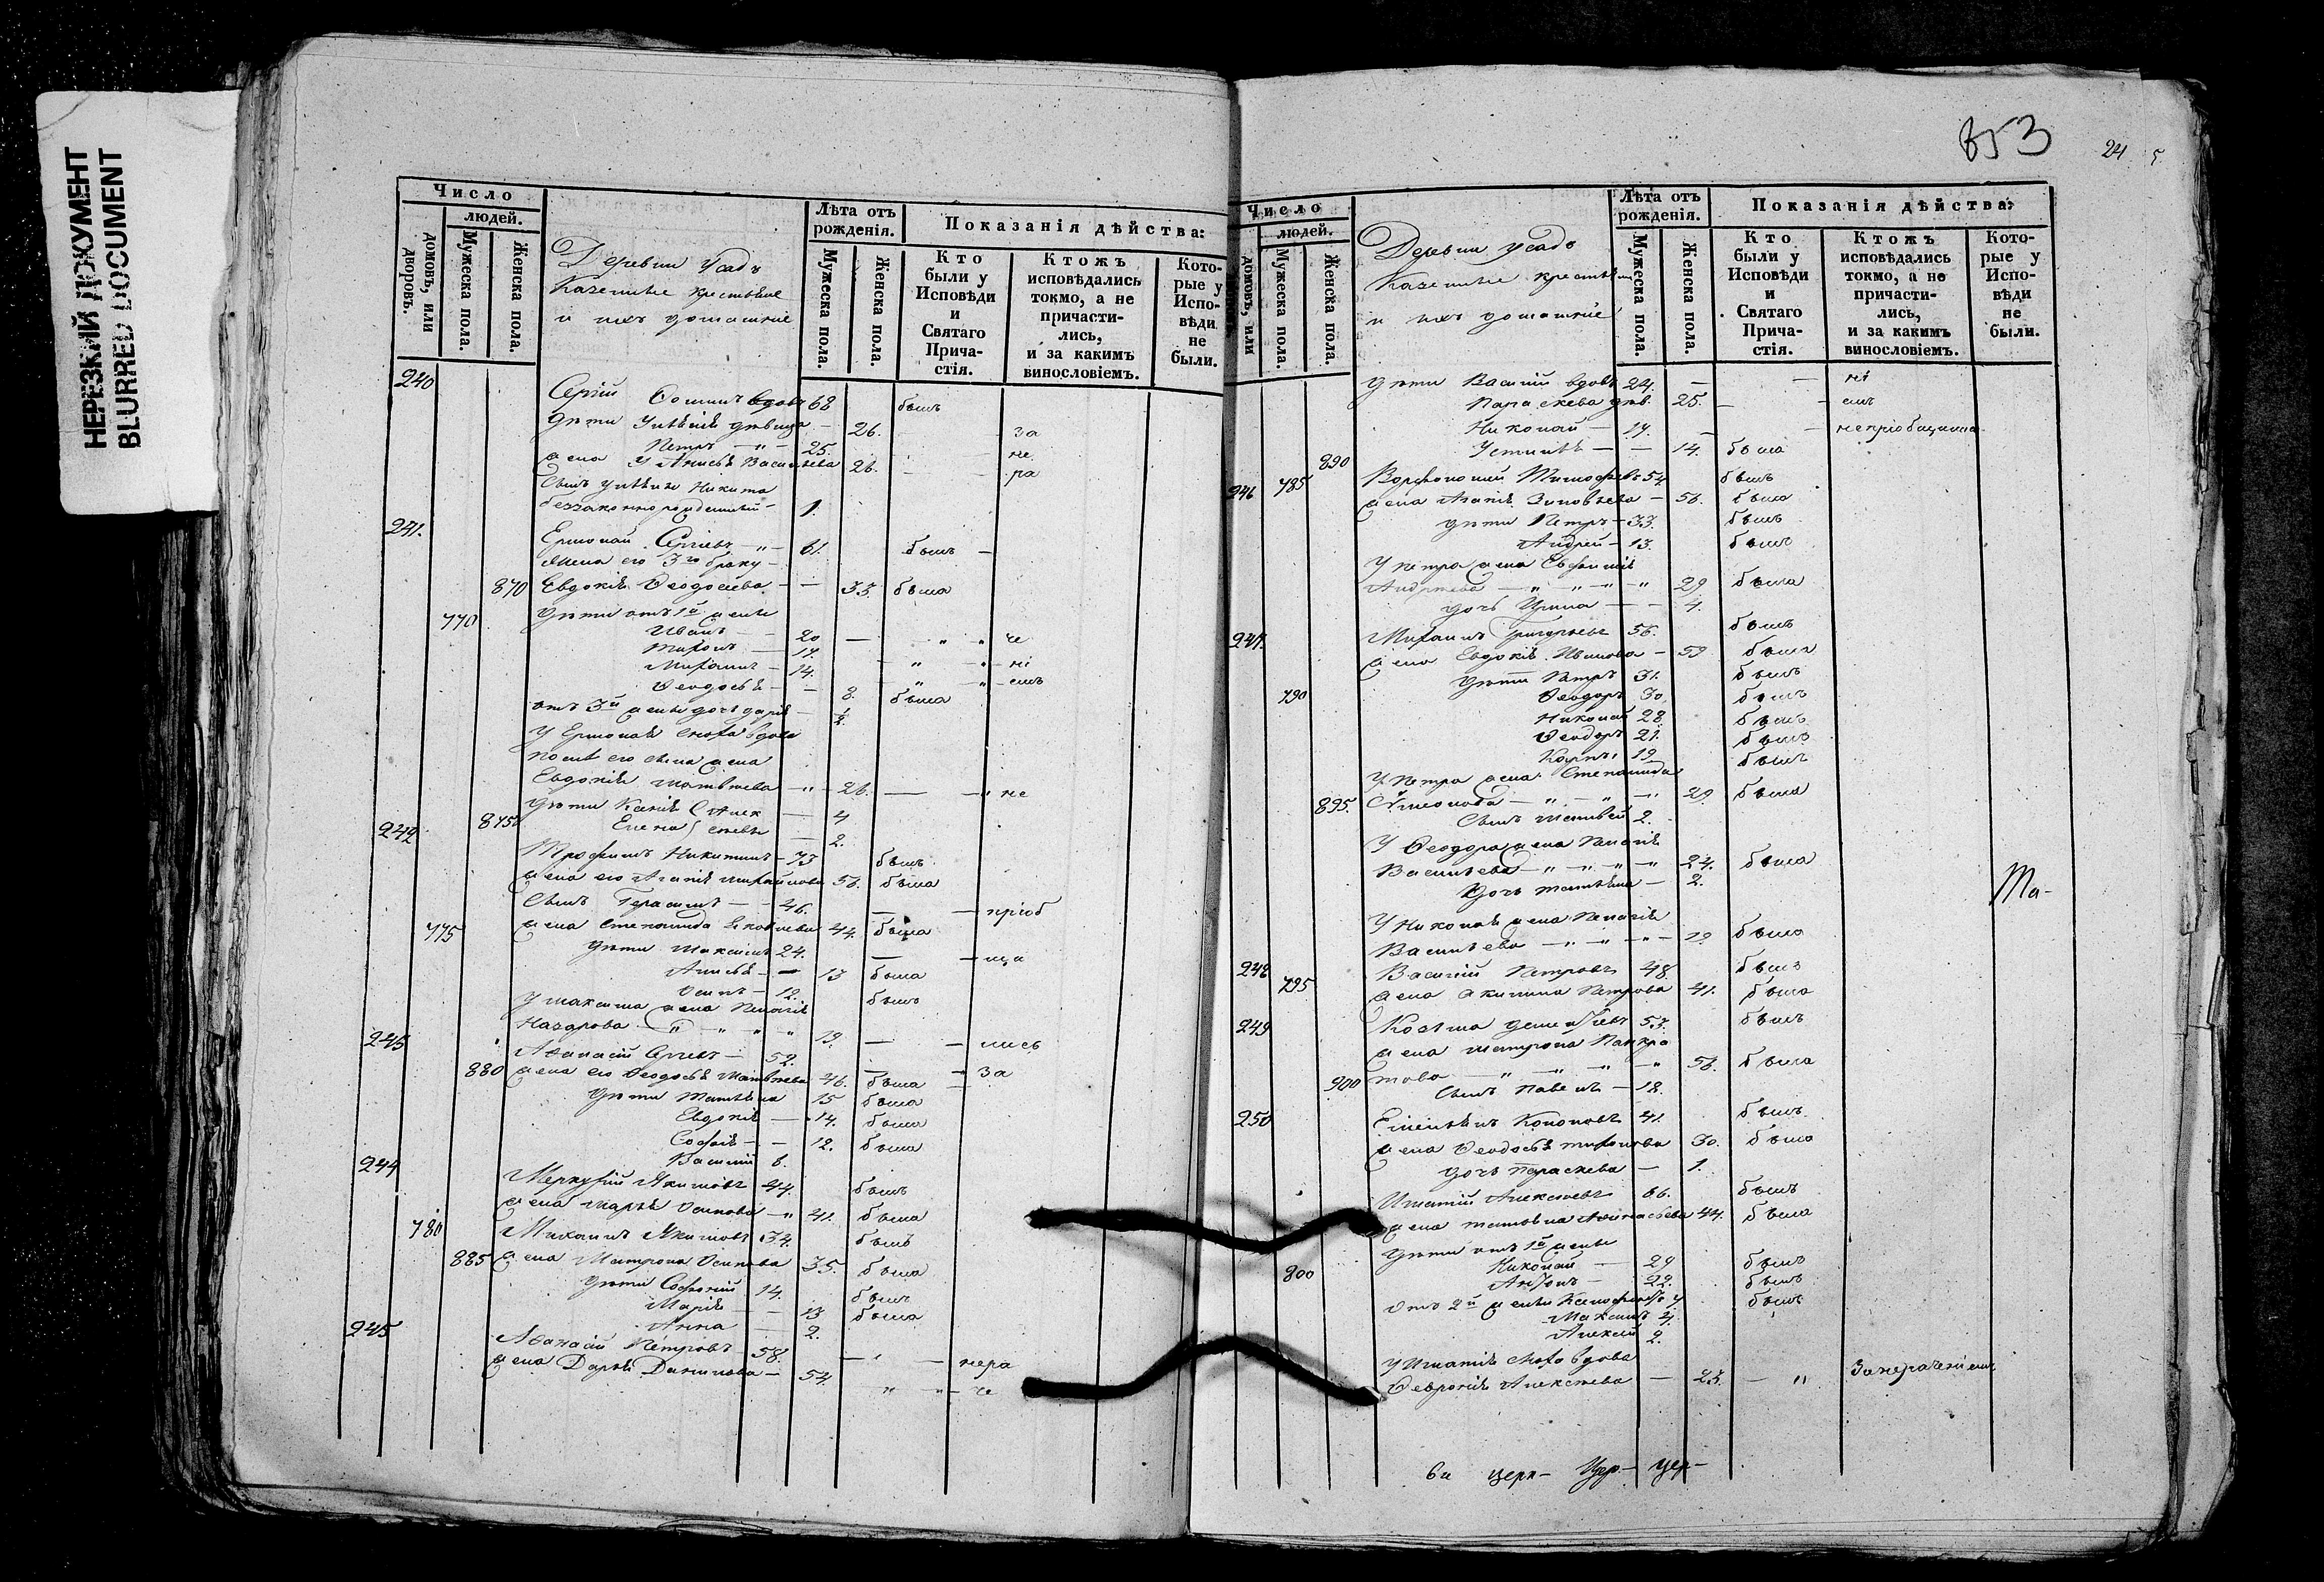 НЕРЕЗКИЙ ДОКУМЕНТ
BLURRED DOCUMENT
Число
людей.
домовъ, или дворовъ.
Мужеска пола.
Женска пола.
Деревни Усадъ
Казенные крестьяне
и ихъ домашніе
Лѣта отъ рожденія.
Мужеска пола.
Женска пола.
Показанія дѣйства:
Кто были у Исповѣди и Святаго Прича-стія.
Ктожъ исповѣдались токмо, а не причасти-лись, и за какимъ винословіемъ.
Кото-рые у Испо-вѣди не были.
240 Сергій вдовъ 68 былъ
дѣти дѣвица — 26. — за
Петръ — " — 25. — не
жена Васильева 26. — ра
сынъ Никита
беззаконнорожденный — 1.
241. Ермолай Сергѣевъ — " — 61. былъ —
жена его 3го браку —
870 Евдокія Ѳеодосѣева — — 33. была
770 дѣти отъ 1й жены
Иванъ — 20 — " " че
Тихонъ — 17. " — " — ні
Михаилъ — 14. " — " — емъ
Ѳеодосья — — 8. была
отъ 3й жены дочь Дарья — 1/2
У Ермолая сноха вдова
его сына жена
Евдокія Матвѣева — " — 26. — — " не
дѣти Ксенія Алек — 4
875 Елена сѣевы — 2.
242 Трофимъ Никитинъ — 73 былъ
жена его Агапія Михайлова 56. была
Сынъ Герасимъ — — 46. — — пріоб
жена Степанида Яковлева 44. была
775 дѣти Максимъ 24. — — ща
Анисья — — 13 была
Осипъ — 12. былъ
У Максима жена Пелагія
Назарова — " — " — " — " 19. — — лись
243 Аѳанасій Сергѣевъ — 52. — — За
880 жена его Ѳеодосья Матвѣева 46. была —
дѣти Татьяна 15 была
Евдокія — 14. была
Софья — — 12. была
Василій 6.
244 Меркурій Якимовъ 44. былъ
жена Марья Осипова — " 41. была
780 Михаилъ Якимовъ 34. былъ
885 жена Матрона Осипова 35. была
дѣти Софроній 14. былъ
Марія — — 13 была
Анна — 2.
245 Аѳанасій Петровъ — 58. — " — нера
жена Дарья Данилова — 54. " " — че
853
24 5
Число
людей.
домовъ, или
Мужеска пола.
Женска пола.
Деревни Усадъ
Казенные крестьяне
и ихъ домашніе
Лѣта отъ рожденія.
Мужеска пола.
Женска пола.
Показанія дѣйства:
Кто были у Исповѣди и Святаго Прича-стія.
Ктожъ исповѣдались токмо, а не причасти-лись, и за какимъ винословіемъ.
Кото-рые у Испо-вѣди не были.
дѣти Василій вдовъ 24. — — ні
Параскева дѣв. 25. — — емъ
Николай — 17. — — непріобщились
890 Устинья — — 14. была
246 785 Варѳоломей Тимофѣевъ 54. былъ
жена Агапія Зиновьева — 56. была
дѣти Петръ — 33. былъ
Андрей — 13. былъ
У Петра жена Евфимія
Андреева — " — " — " — " 29. была
дочь Ирина — — 4.
247. Михаилъ Григорьевъ 56. былъ
жена Евдокія Иванова — 59 была
дѣти Петръ 31. былъ
790 Ѳеодоръ 30. былъ
Николай 28. былъ
Ѳеодоръ 21. былъ
Карпъ 19 былъ
У Петра жена Степанида
895. Симонова — " — " — " 29. была
Сынъ Матвей 2.
У Ѳеодора жена Пелагія
Васильева — " — " — " — " 24. была
дочь Татьяна — 2.
У Николая жена Пелагія
Васильева — " — " — " — 19. была
248 795 Василій Петровъ 48 былъ
жена Акилина Петрова 41. была
249 Козма Дементьевъ 53. былъ
жена Матрона Панкра
това — " — " — " — " 56. была
900 Сынъ Павелъ — 18.
250 Емельянъ Кононовъ 41. былъ
жена Ѳеодосья Тихонова 30. была
дочь Параскева — 1.
Игнатій Алексѣевъ 66. былъ
жена Татьяна Аѳанасьева 44. была
дѣти отъ 1й жены
800 Николай — 29 былъ
Антонъ — 22. былъ
отъ 2й жены Ксенофонтъ 7 былъ
Максимъ 4.
Алексей 2.
У Игнатія сноха вдова
Ѳевронія Алексѣева — 23. — " Занераченіемъ
Ма-
ва церк- Цер- цер-